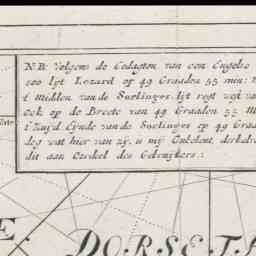 N.B. Volgens de Gedagten van een Engels
soo lyt Lezard op 49 Graaden 55 min:
't Midden van de Sorlinges lit regt
ook op de Breete van 49 Graaden 55 M
't Zuyd Eynde van de Sorlinges op 49 Graa
dog wat hier van zy, is my Onbekent,
dit aan Oordeel des Gebruykers:
E.
DORSETS